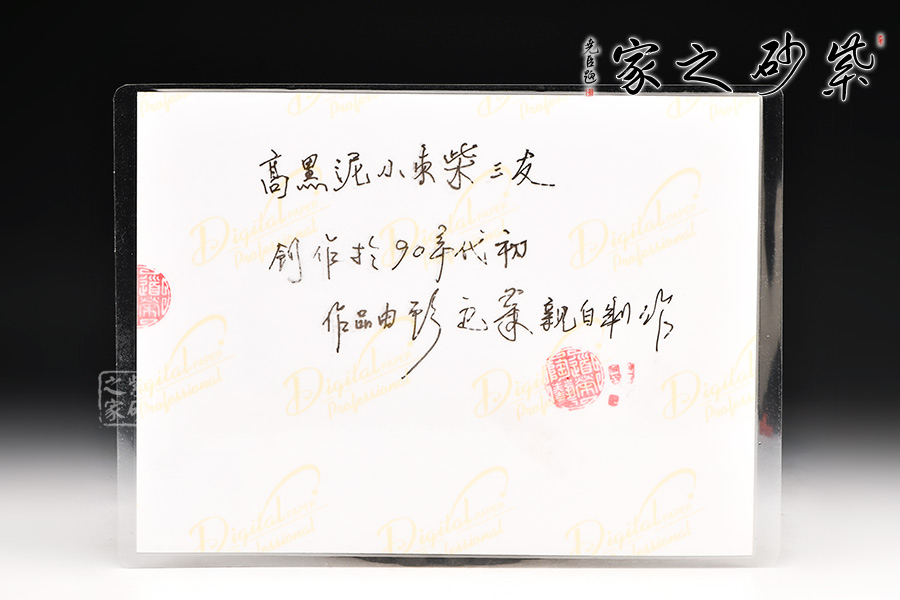 紫砂之家
高黑泥小束柴三友
创作於90年代初
作品由親自制作
紫砂之家
Digital
Professional